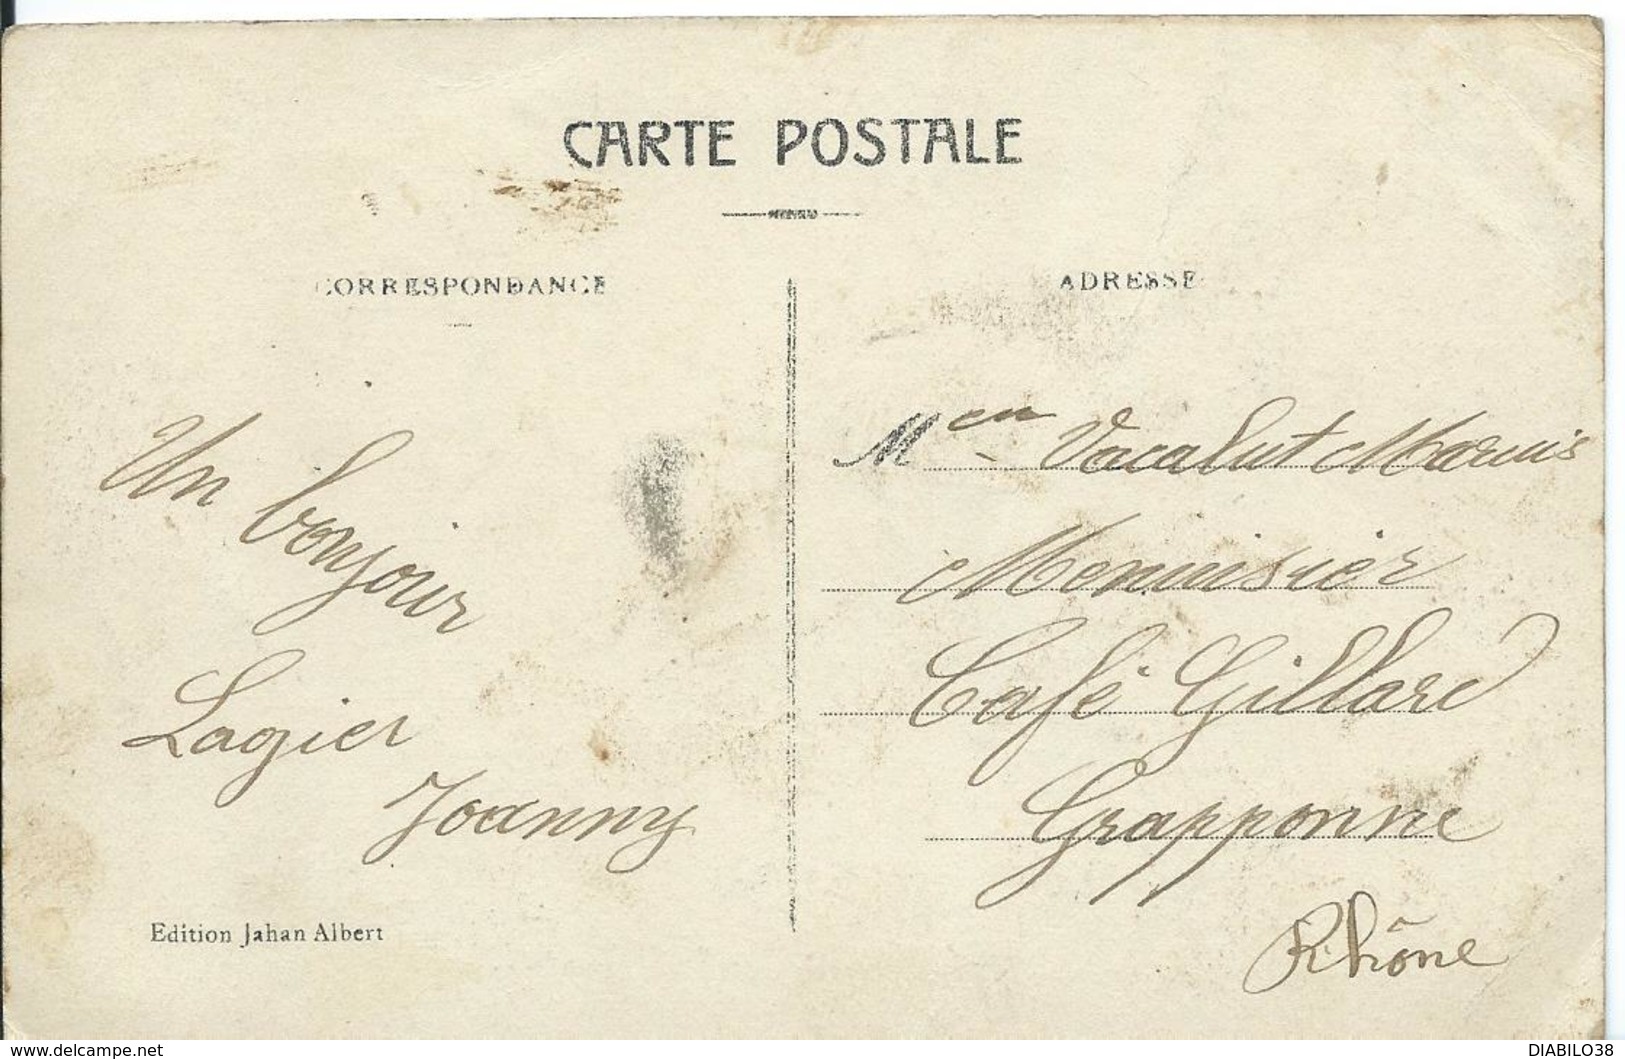 CARTE POSTALE
CORRESPONDANCE
ADRESSE
Un bonjour
Lagier
Joanny
Edition Jahan Albert
Menuisier
Café Gillard
Grapponne
Rhône
www.delcampe.net
DIABILO38